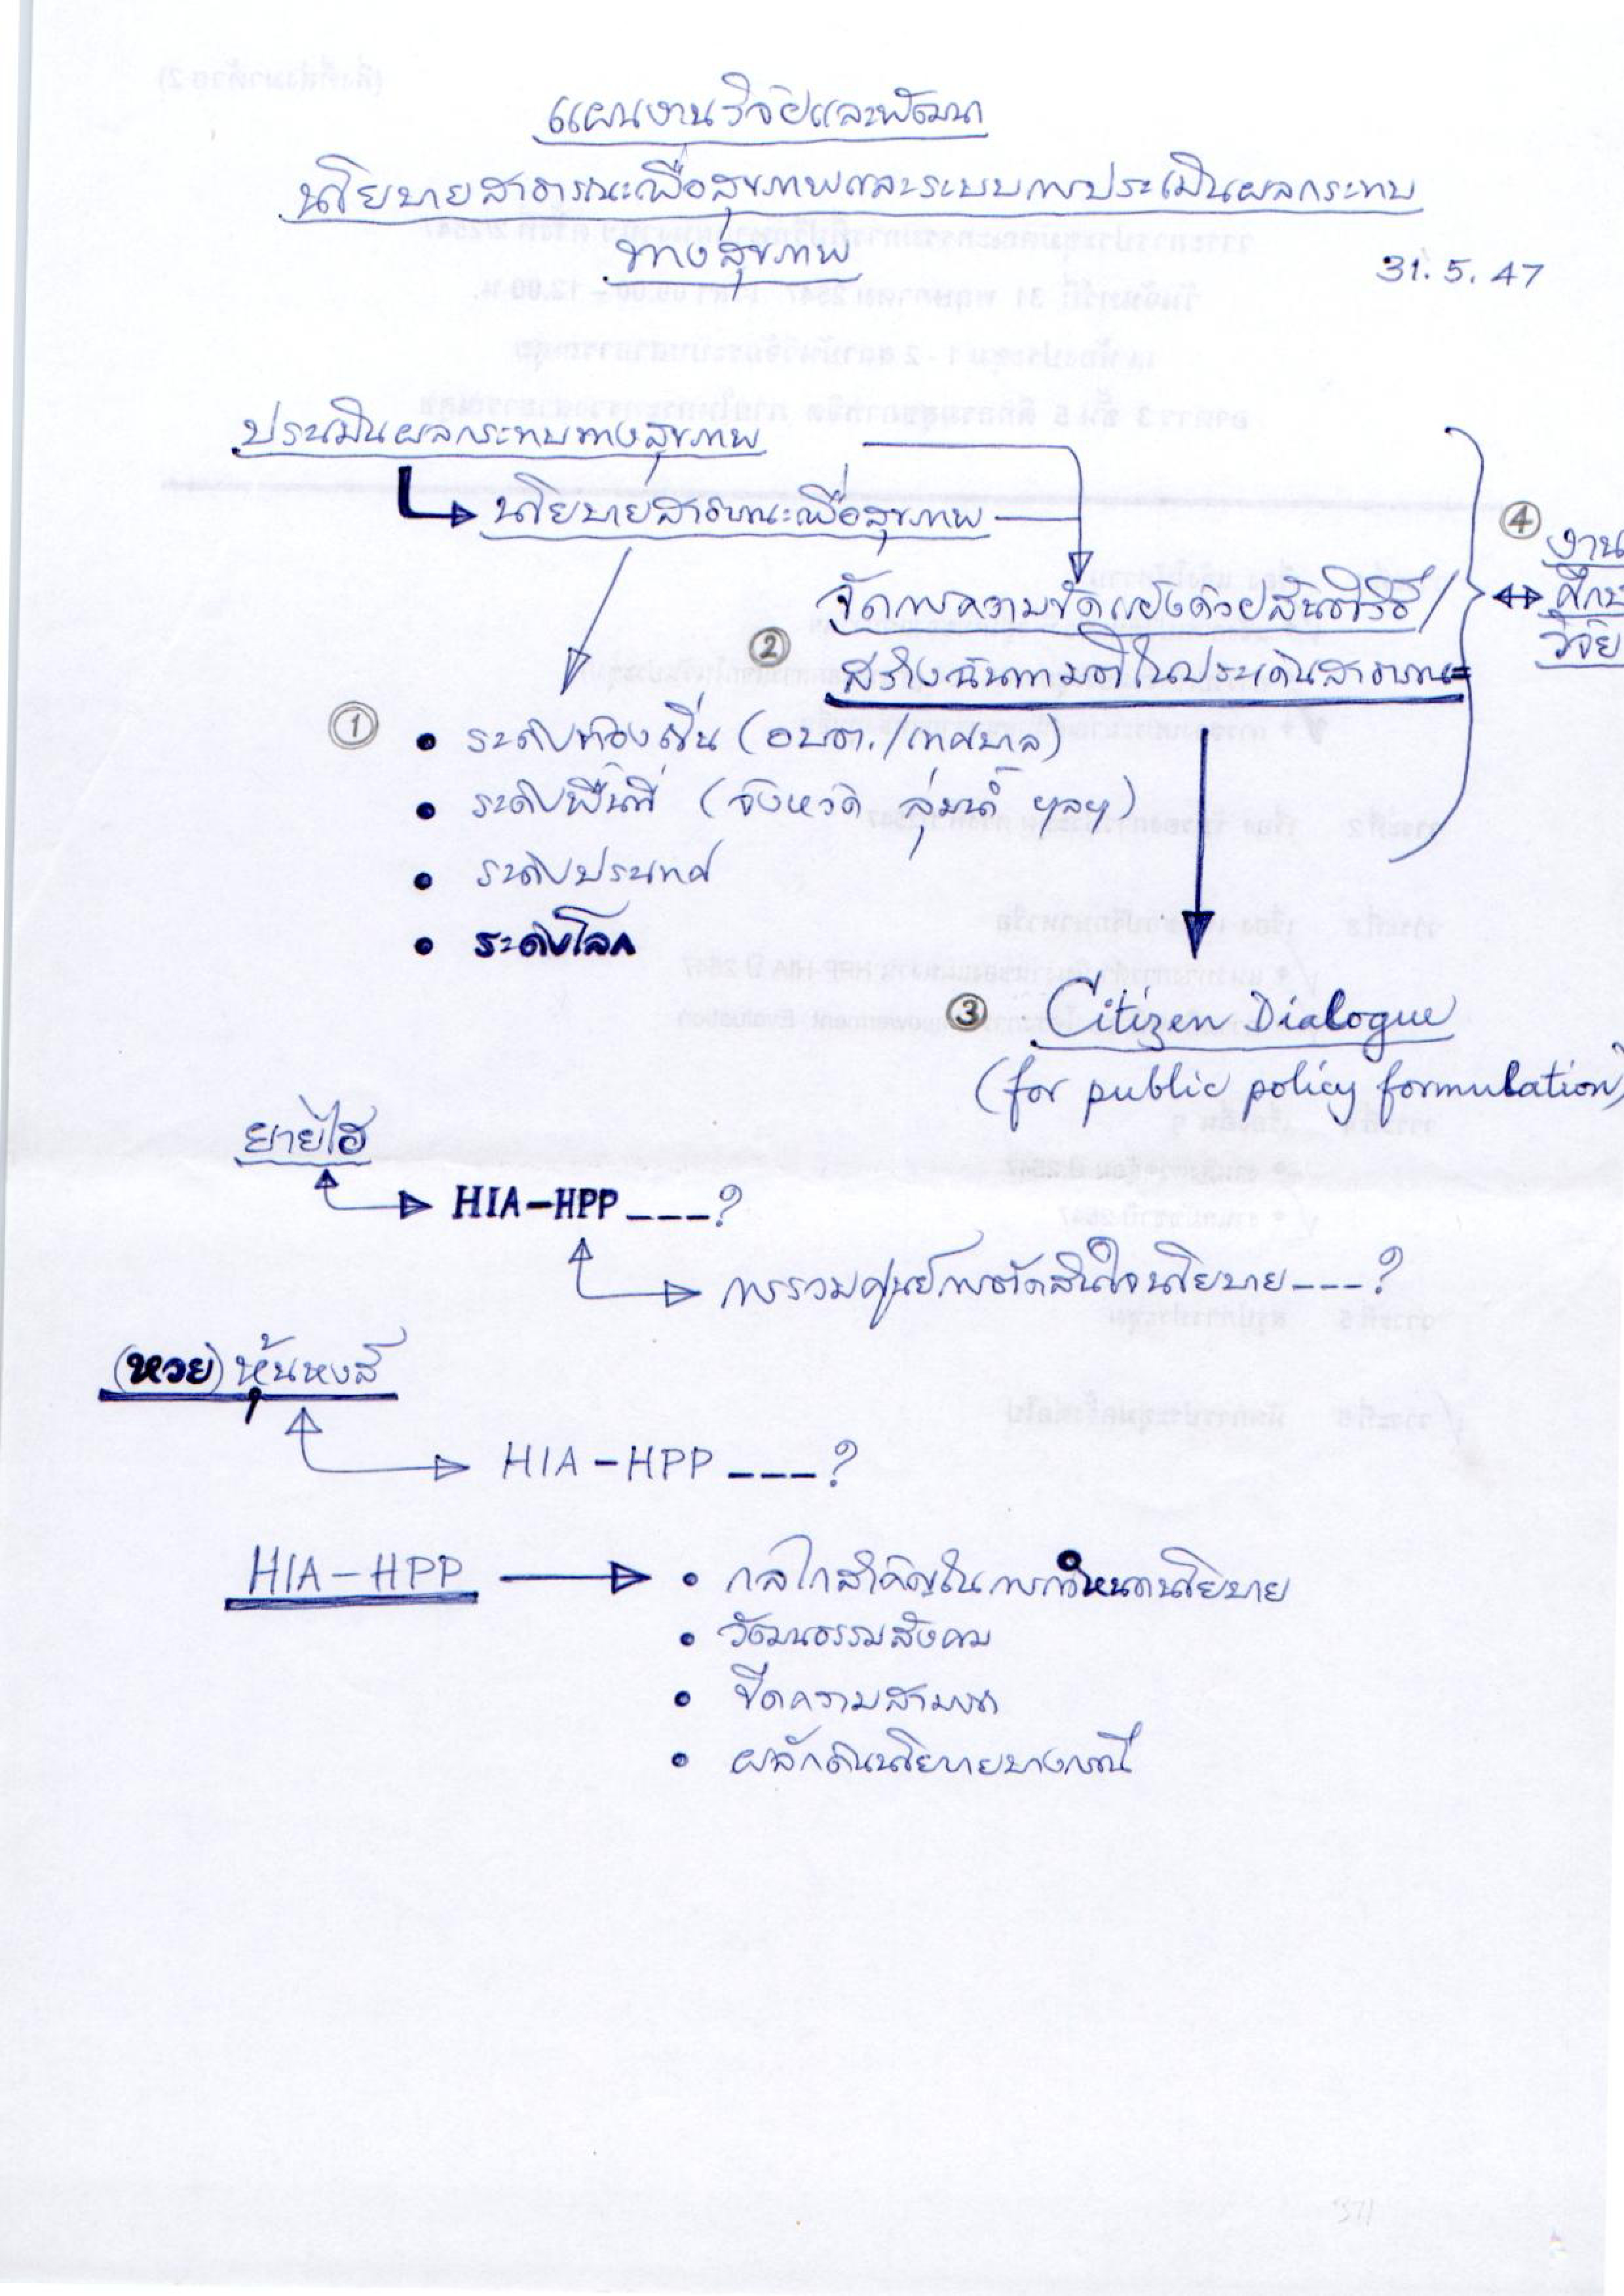 แผนงานวิจัยและพัฒนา
นโยบายสาธารณะเพื่อสุขภาพและระบบการประเมินผลกระทบ
ทางสุขภาพ
31.5.47
ประเมินผลกระทบทางสุขภาพ
นโยบายสาธารณะเพื่อสุขภาพ
④ งาน
จัดการความขัดแย้งด้วยสันติวิธี/
↔ ศึกษ
② สร้างฉันทามติในประเด็นสาธารณะ
วิจัย
①
• ระดับท้องถิ่น (อบต./เทศบาล)
• ระดับพื้นที่ (จังหวัด ลุ่มน้ำ ฯลฯ)
• ระดับประเทศ
• ระดับโลก
③ Citizen Dialogue
(for public policy formulation)
ยายไฮ
HIA-HPP ---?
การรวมศูนย์การตัดสินใจนโยบาย---?
(หวย) หุ้นหงส์
HIA-HPP ---?
HIA-HPP → • กลไกสำคัญในการกำหนดนโยบาย
• วัฒนธรรมสังคม
• ขีดความสามารถ
• ผลักดันนโยบายบางกรณี
371